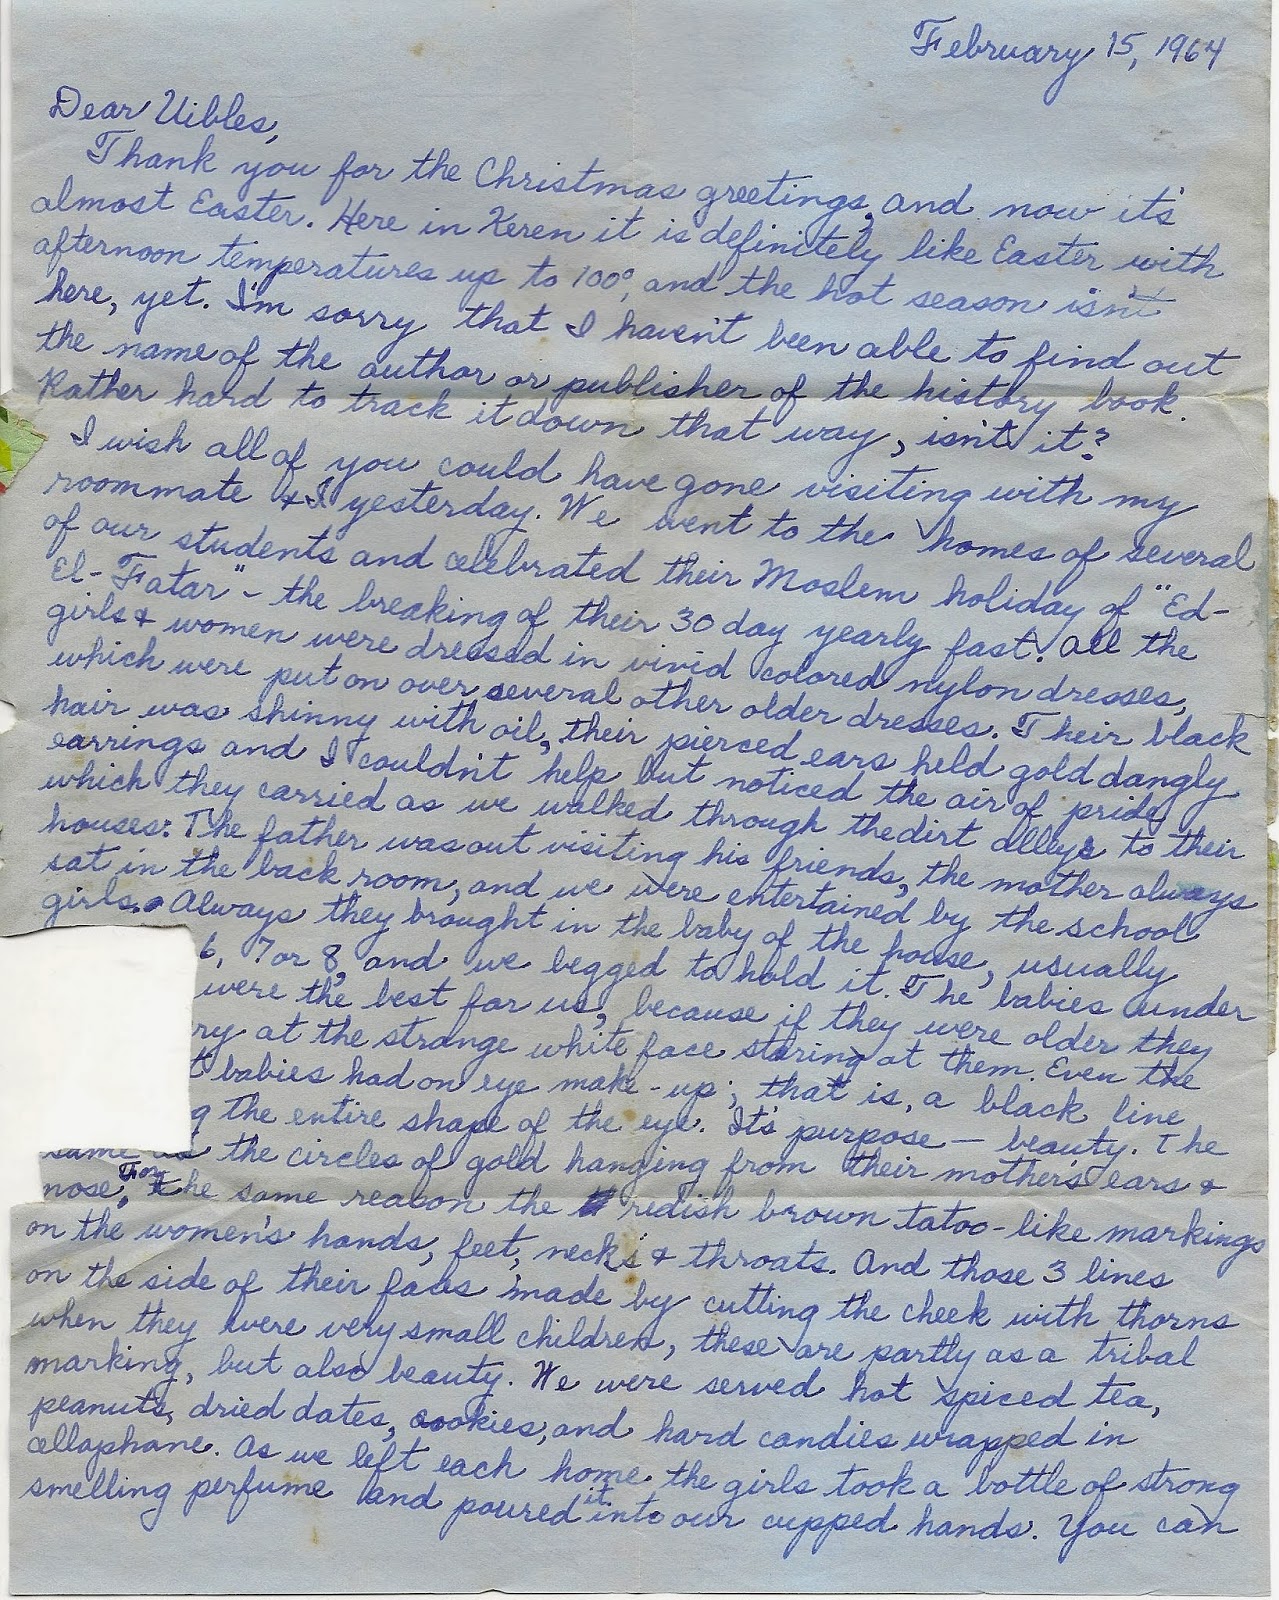 February 15, 1964
Dear Uibles,
Thank you for the Christmas greetings, and now it's
almost Easter. Here in Keren it is definitely like Easter with
afternoon temperatures up to 100°, and the hot season isn't
here, yet. I'm sorry that I haven't been able to find out
the name of the author or publisher of the history book.
Rather hard to track it down that way, isn't it?
I wish all of you could have gone visiting with my
roommate & I yesterday. We went to the homes of several
of our students and celebrated their Moslem holiday of "Ed-
El-Fatar" - the breaking of their 30 day yearly fast. All the
girls & women were dressed in vivid colored nylon dresses,
which were put on over several other older dresses. Their black
hair was shinny with oil, their pierced ears held gold dangly
earrings and I couldn't help but noticed the air of pride
which they carried as we walked through the dirt alleys to their
houses. The father was out visiting his friends, the mother always
sat in the back room, and we were entertained by the school
girls. Always they brought in the baby of the house, usually
6, 7 or 8, and we begged to hold it. The babies under
were the best for us, because if they were older they
ry at the strange white face staring at them. Even the
t babies had on eye make-up; that is, a black line
g the entire shape of the eye. It's purpose — beauty. The
same as the circles of gold hanging from their mother's ears &
nose. For the same reason the redish brown tatoo-like markings
on the women's hands, feet, necks & throats. And those 3 lines
on the side of their faces made by cutting the cheek with thorns
when they were very small children, these are partly as a tribal
marking, but also beauty. We were served hot spiced tea,
peanuts, dried dates, cookies, and hard candies wrapped in
cellaphane. As we left each home the girls took a bottle of strong
smelling perfume and poured it into our cupped hands. You can